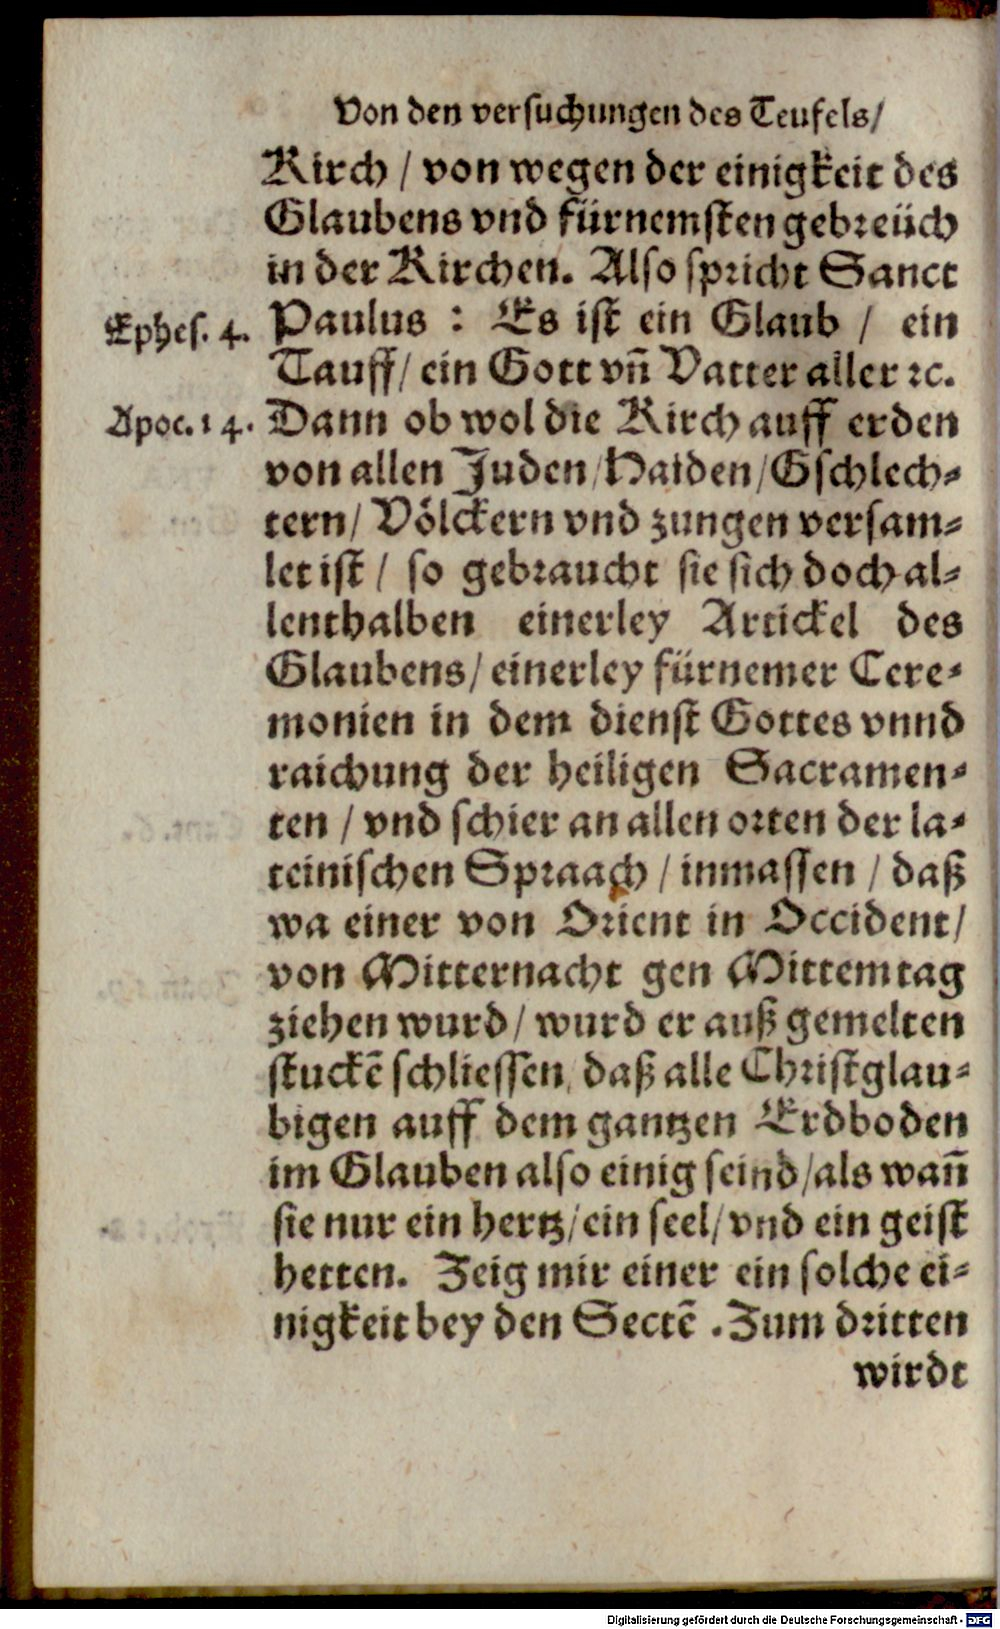 Von den versuchungen des Teufels/
Kirch / von wegen der einigkeit des
Glaubens vnd fürnemsten gebreüch
in der Kirchen. Also spricht Sanct
Ephes. 4. Paulus : Es ist ein Glaub / ein
Tauff/ ein Gott vñ Vatter aller ꝛc.
Apoc. 14. Dann ob wol die Kirch auff erden
von allen Juden/Haiden/Gschlech-
tern/ Völckern vnd zungen versam-
let ist / so gebraucht sie sich doch al-
lenthalben einerley Artickel des
Glaubens/ einerley fürnemer Cere-
monien in dem dienst Gottes vnnd
raichung der heiligen Sacramen-
ten / vnd schier an allen orten der la-
teinischen Spraach / inmassen / daß
wa einer von Orient in Occident/
von Mitternacht gen Mittemtag
ziehen wurd/ wurd er auß gemelten
stuckẽ schliessen, daß alle Christglau-
bigen auff dem gantzen Erdboden
im Glauben also einig seind/als wañ
sie nur ein hertz/ein seel/ vnd ein geist
hetten. Zeig mir einer ein solche ei-
nigkeit bey den Sectẽ . Zum dritten
wirdt
Digitalisierung gefördert durch die Deutsche Forschungsgemeinschaft - DFG